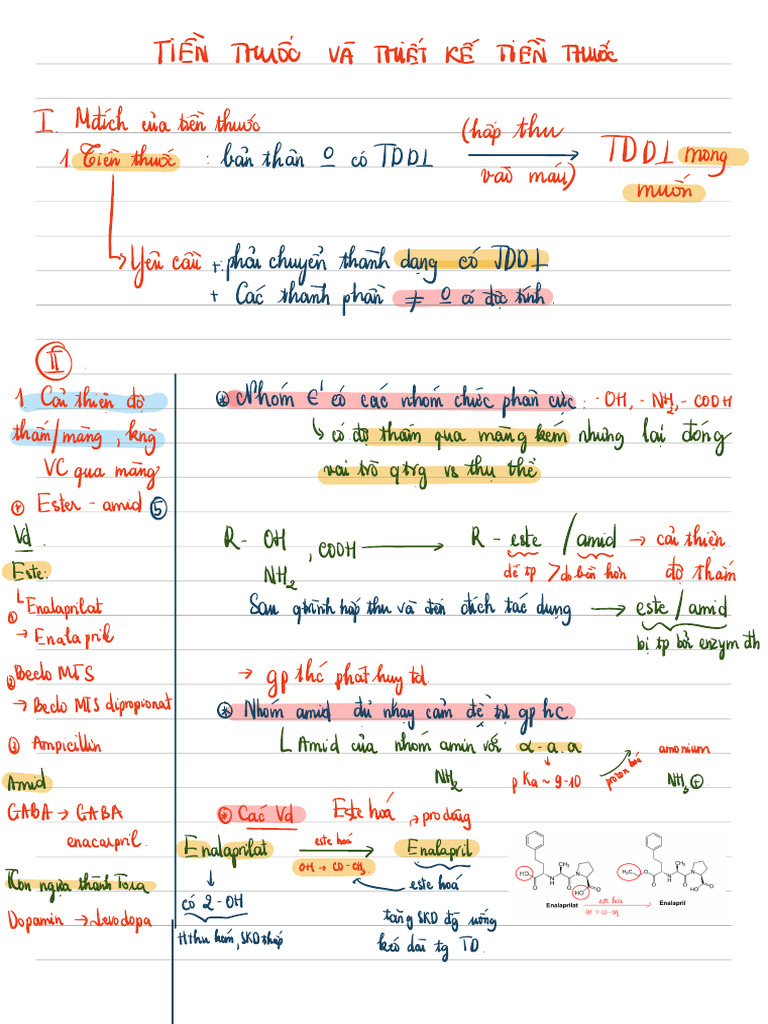 TIỀN THUỐC VÀ THIẾT KẾ TIỀN THUỐC
I. Mđích của tiền thuốc
1 Tiền thuốc : bản thân O có TDDL
(hấp thu
vào máu)
TDDL mong
muốn
Yêu cầu + phải chuyển thành dạng có TDDL
+ Các thành phần ≠ O có độc tính
II
1 Cải thiện độ
thấm/màng, kng
VC qua màng
* Ester - amid ⑤
Vd
Este:
① Enalaprilat
→ Enalapril
② Beclo MTS
→ Beclo MTS dipropionat
③ Ampicillin
Amid
GABA → GABA
enacarpril.
Kon ngừa thành Tora
Dopamin → Levodopa
* Nhóm có các nhóm chức phân cực : -OH, -NH2, -COOH
↳ có độ thấm qua màng kém nhưng lại đóng
vai trò qtrg vs thụ thể
R - OH , COOH → R - este / amid → cải thiện
NH2
dễ tp > do bền hơn độ thấm
Sau qtrình hấp thu và đến đích tác dụng → este / amid
bị tp bởi enzym đh
→ gp thč phát huy td.
* Nhóm amid đủ nhạy cảm để trị gp h.c.
Amid của nhóm amin với α-a.a
NH2
pKa ~ 9-10
proton hoá
amonium
NH3 ⊕
* Các Vd
Este hoá → prodrug
Enalaprilat
este hoá
OH → CO-CH3
Enalapril
có 2-OH
este hoá
Hthu kém, SKD thấp
tăng SKD đg uống
kéo dài tg TD.
HO
O
CH3
N
H
O
HO
O
Enalaprilat
este hoá
OH → CO-CH3
H3C
O
O
CH3
N
H
O
OH
O
Enalapril